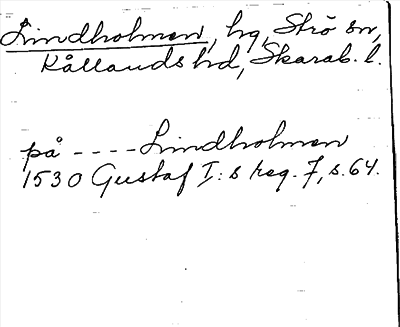 Lindholmen, hg, Strö sn,
Kållands hd, Skarab. l.
på ---- Lindholmen
1530 Gustaf I:s reg. 7, s. 64.